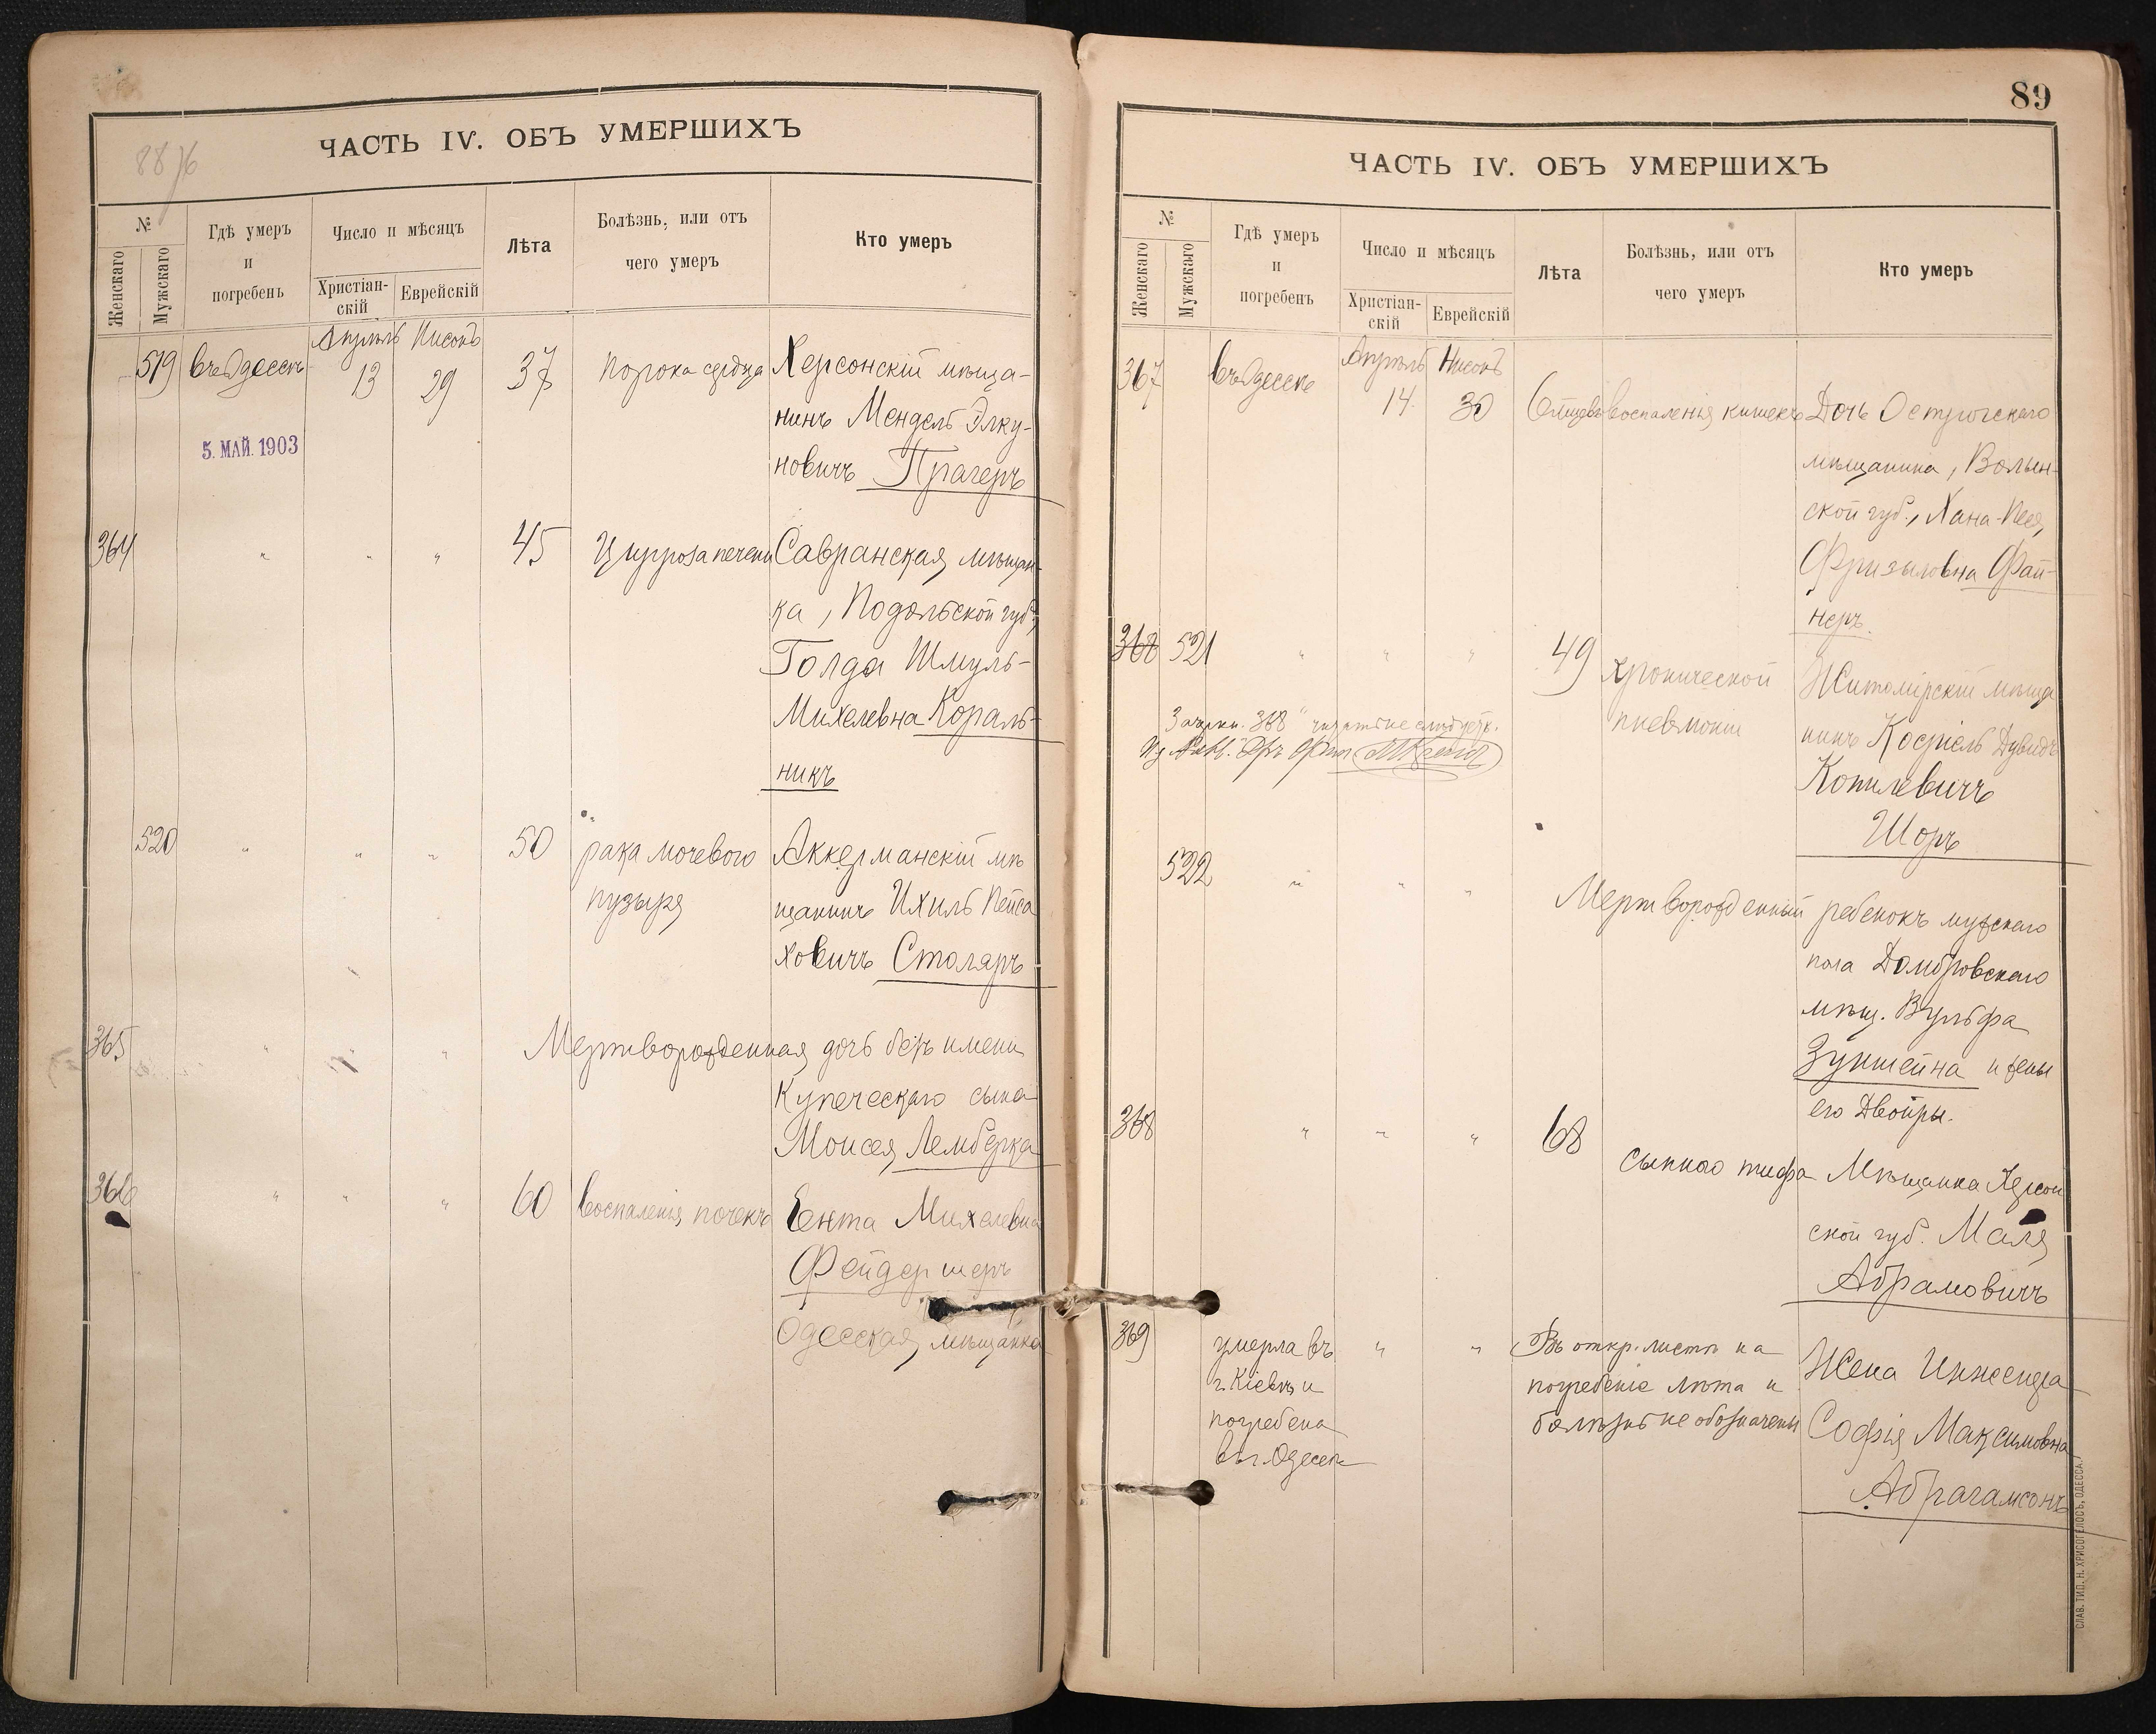 88 76
ЧАСТЬ IV. ОБЪ УМЕРШИХЪ
№
Женскаго
Мужскаго
Гдѣ умеръ
и
погребенъ
Число и мѣсяцъ
Христіан-
скій
Еврейскій
Лѣта
Болѣзнь, или отъ
чего умеръ
Кто умеръ
519 въ Одессѣ Апрѣль 13 Нисонъ 29 37 порока сердца Херсонскій мѣща-
нинъ Мендель Элку-
новичъ Прагеръ
5. МАЙ. 1903
364 " " " 45 Цирроза печени Савранская мѣщан-
ка, Подольской губ.,
Голда Шмуль-
Михелевна Кораль-
никъ
520 " " " 50 рака мочевого Аккерманскій мѣ
пузыря щанинъ Ихиль Пейса
ховичъ Столяръ
365 " " " Мертворожденная дочь безъ имени
Купеческаго сына
Моисея Лемберка
366 " " " 60 Воспаленія почекъ Ента Михелевна
Фейдершеръ
Одесская мѣщанка
89
ЧАСТЬ IV. ОБЪ УМЕРШИХЪ
№
Женскаго
Мужскаго
Гдѣ умеръ
и
погребенъ
Число и мѣсяцъ
Христіан-
скій
Еврейскій
Лѣта
Болѣзнь, или отъ
чего умеръ
Кто умеръ
367 въ Одессѣ Апрѣль 14 Нисонъ 30 6 мѣсяцевъ воспаленія кишекъ Дочь Острогскаго
мѣщанина, Волын-
ской губ., Хана-Песя
Фризыловна Фай-
неръ.
368 521 " " " 49 хронической Житомірскій мѣща
пневмоніи нинъ Косріель Дувидъ
Зачеркн. "368" читать не слѣдуетъ.
Копилевичъ
Шоръ
522 " " " Мертворожденный ребенокъ мужскаго
пола Домбровскаго
мѣщ. Вульфа
Зунштейна и жены
его Двойры.
368 " " " 68 сыпного тифа Мѣщанка Херсон
ской губ. Маля
Абрамовичъ
369 умерла въ " " Въ откр. листѣ на Жена Инженера
г. Кіевѣ и погребеніе лѣта и
погребена болѣзнь не обозначены Софія Максимовна
въ г. Одессѣ Абрагамсонъ
СЛАВ. ТИП. Н. ХРИСОГЕЛОСЪ, ОДЕССА.